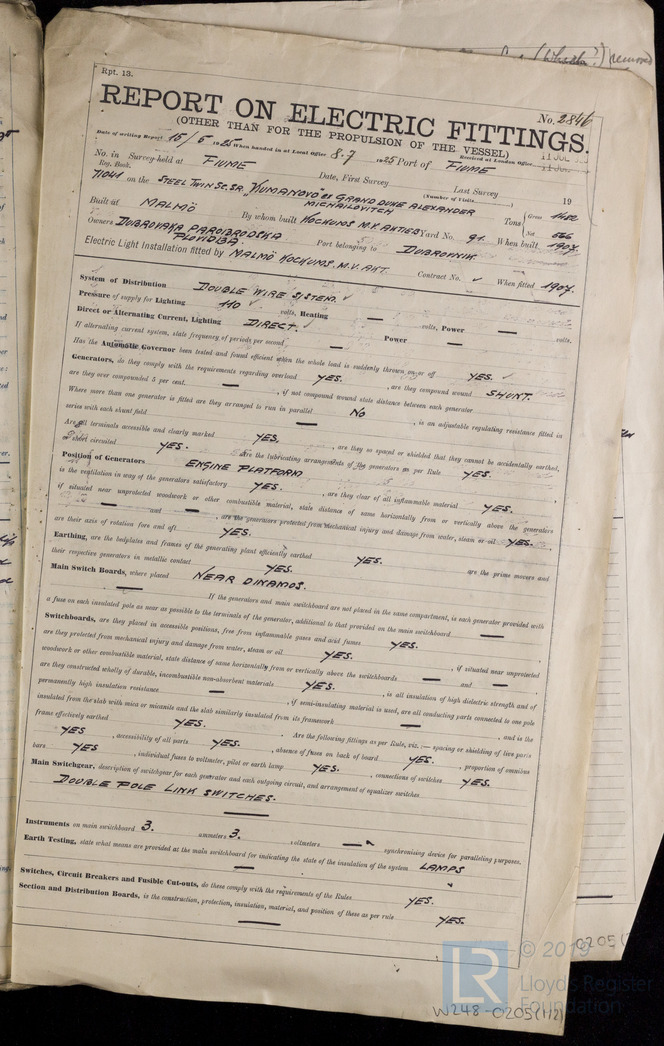 (Whistle?) removed
Rpt. 13.
No. 2846
REPORT ON ELECTRIC FITTINGS.
(OTHER THAN FOR THE PROPULSION OF THE VESSEL)
Date of writing Report 15/6 1925 When handed in at Local Office 8.7 1925 Port of FIUME Received at London Office
No. in Survey held at FIUME Date, First Survey Last Survey 19
Reg. Book. (Number of Visits)
71041 on the STEEL TWIN SC. SR "KUMANOVO" ex GRAND DUKE ALEXANDER MICHAILOVITCH
Tons Gross 1482
Net 866
Built at MALMÖ By whom built KOCKUMS M.V. AKTIEB Yard No. 91 When built 1907
Owners DUBROVAKA PAROBRODSKA PLOVIDBA Port belonging to DUBROVNIK
Electric Light Installation fitted by MALMÖ KOCKUMS. M.V. AKT. Contract No. ✓ When fitted 1907.
System of Distribution DOUBLE WIRE SYSTEM. ✓
Pressure of supply for Lighting 110 ✓ volts, Heating — volts, Power — volts.
Direct or Alternating Current, Lighting DIRECT. ✓ Power —
If alternating current system, state frequency of periods per second —
Has the Automatic Governor been tested and found efficient when the whole load is suddenly thrown on or off YES. ✓
Generators, do they comply with the requirements regarding overload YES. , are they compound wound SHUNT.
are they over compounded 5 per cent. — , if not compound wound state distance between each generator
Where more than one generator is fitted are they arranged to run in parallel NO , is an adjustable regulating resistance fitted in
series with each shunt field —
Are all terminals accessible and clearly marked YES. , are they so spaced or shielded that they cannot be accidentally earthed,
short circuited YES. Are the lubricating arrangements of the generators as per Rule YES.
Position of Generators ENGINE PLATFORM
is the ventilation in way of the generators satisfactory YES. , are they clear of all inflammable material YES.
if situated near unprotected woodwork or other combustible material, state distance of same horizontally from or vertically above the generators
— and — , are the generators protected from mechanical injury and damage from water, steam or oil YES. ,
are their axis of rotation fore and aft YES.
Earthing, are the bedplates and frames of the generating plant efficiently earthed YES. are the prime movers and
their respective generators in metallic contact YES.
Main Switch Boards, where placed NEAR DINAMOS.
— If the generators and main switchboard are not placed in the same compartment, is each generator provided with
a fuse on each insulated pole as near as possible to the terminals of the generator, additional to that provided on the main switchboard —
Switchboards, are they placed in accessible positions, free from inflammable gases and acid fumes YES. ,
are they protected from mechanical injury and damage from water, steam or oil YES. , if situated near unprotected
woodwork or other combustible material, state distance of same horizontally from or vertically above the switchboards — and — ,
are they constructed wholly of durable, incombustible non-absorbent materials YES. , is all insulation of high dielectric strength and of
permanently high insulation resistance — , if semi-insulating material is used, are all conducting parts connected to one pole
insulated from the slab with mica or micanite and the slab similarly insulated from its framework — , and is the
frame effectively earthed YES. Are the following fittings as per Rule, viz.:— spacing or shielding of live parts
YES , accessibility of all parts YES. , absence of fuses on back of board YES. , proportion of omnibus
bars YES , individual fuses to voltmeter, pilot or earth lamp YES. , connections of switches YES.
Main Switchgear, description of switchgear for each generator and each outgoing circuit, and arrangement of equalizer switches
DOUBLE POLE LINK SWITCHES.
—
Instruments on main switchboard 3. ammeters 3. voltmeters — synchronising device for paralleling purposes.
Earth Testing, state what means are provided at the main switchboard for indicating the state of the insulation of the system LAMPS
—
Switches, Circuit Breakers and Fusible Cut-outs, do these comply with the requirements of the Rules YES.
Section and Distribution Boards, is the construction, protection, insulation, material, and position of these as per rule YES.
—
LR
© 2019
Lloyd's Register
Foundation
W248-0205(1/2)